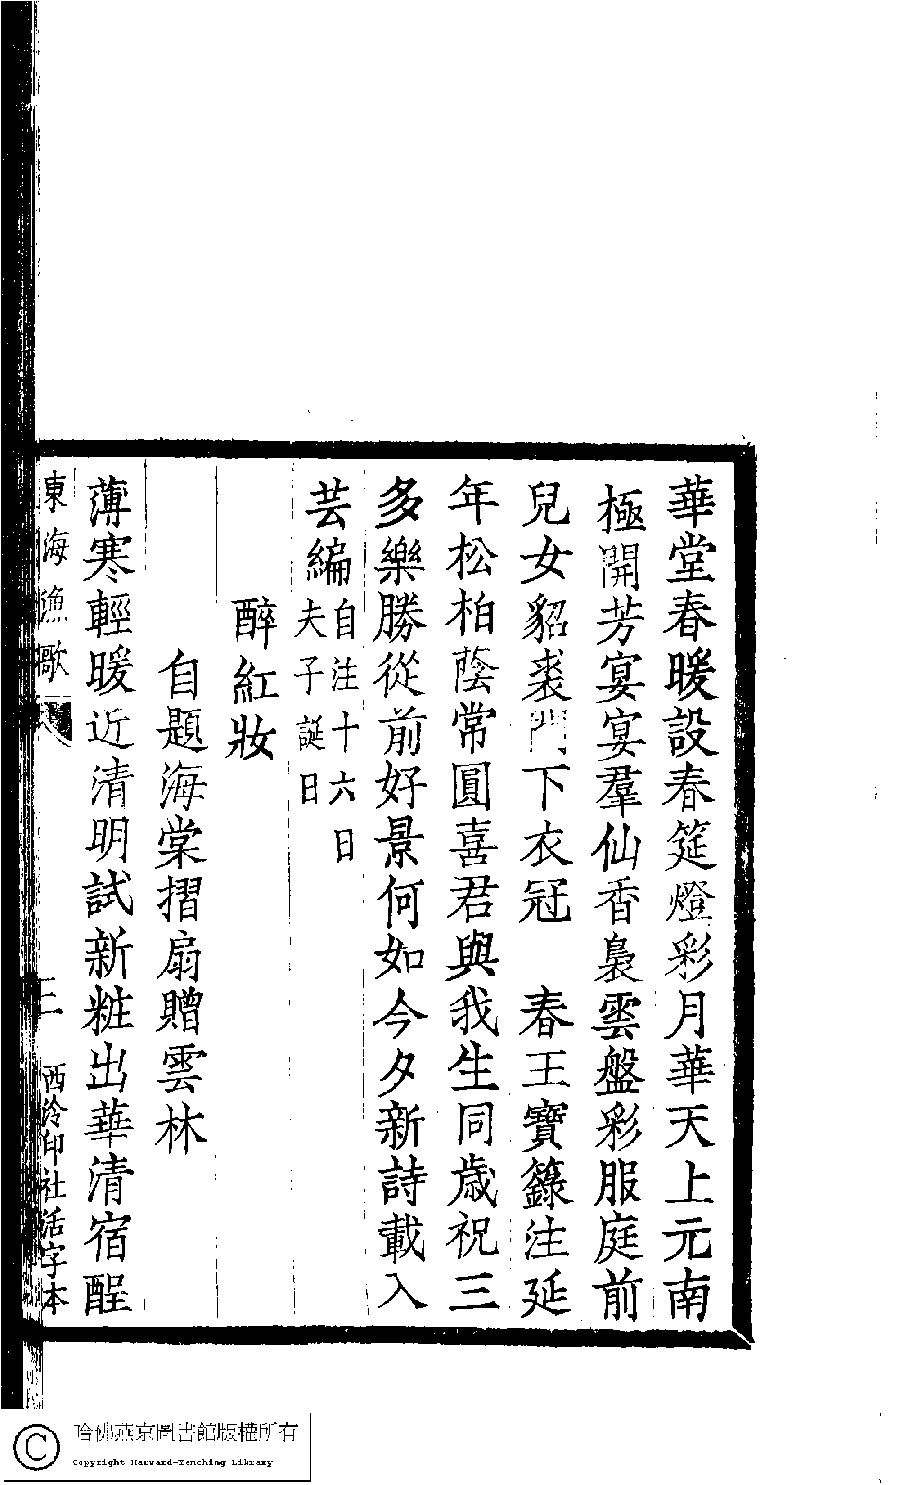 華堂春暖設春筵燈彩月華天上元南
極開芳宴宴羣仙香裊雲盤彩服庭前
兒女貂裘門下衣冠　春王寶籙注延
年松柏蔭常圓喜君與我生同歲祝三
多樂勝從前好景何如今夕新詩載入
芸編自注十六日
夫子誕日
醉紅妝
自題海棠摺扇贈雲林
薄寒輕暖近清明試新粧出華清宿酲
東海漁歌
三
西泠印社活字本
哈佛燕京圖書館版權所有
Copyright Harvard-Yenching Library